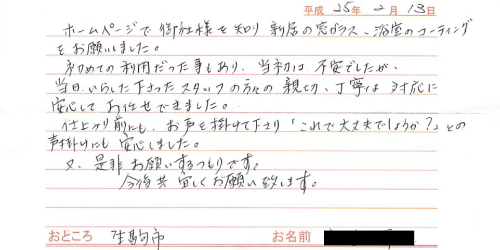 平成 25年 2月 13日
ホームページで御社様を知り 新居の窓ガラス、浴室のコーティング
をお願いしました。
初めての利用だった事もあり、当初は不安でしたが、
当日いらした下さったスタッフの方々の親切、丁寧な対応に
安心してお任せできました。
仕上り前にも、お声を掛けて下さり「これで大丈夫でしょうか?」との
声掛けにも安心しました。
又、是非お願いするつもりです。
今後共宜しくお願い致します。
おところ 生駒市 お名前